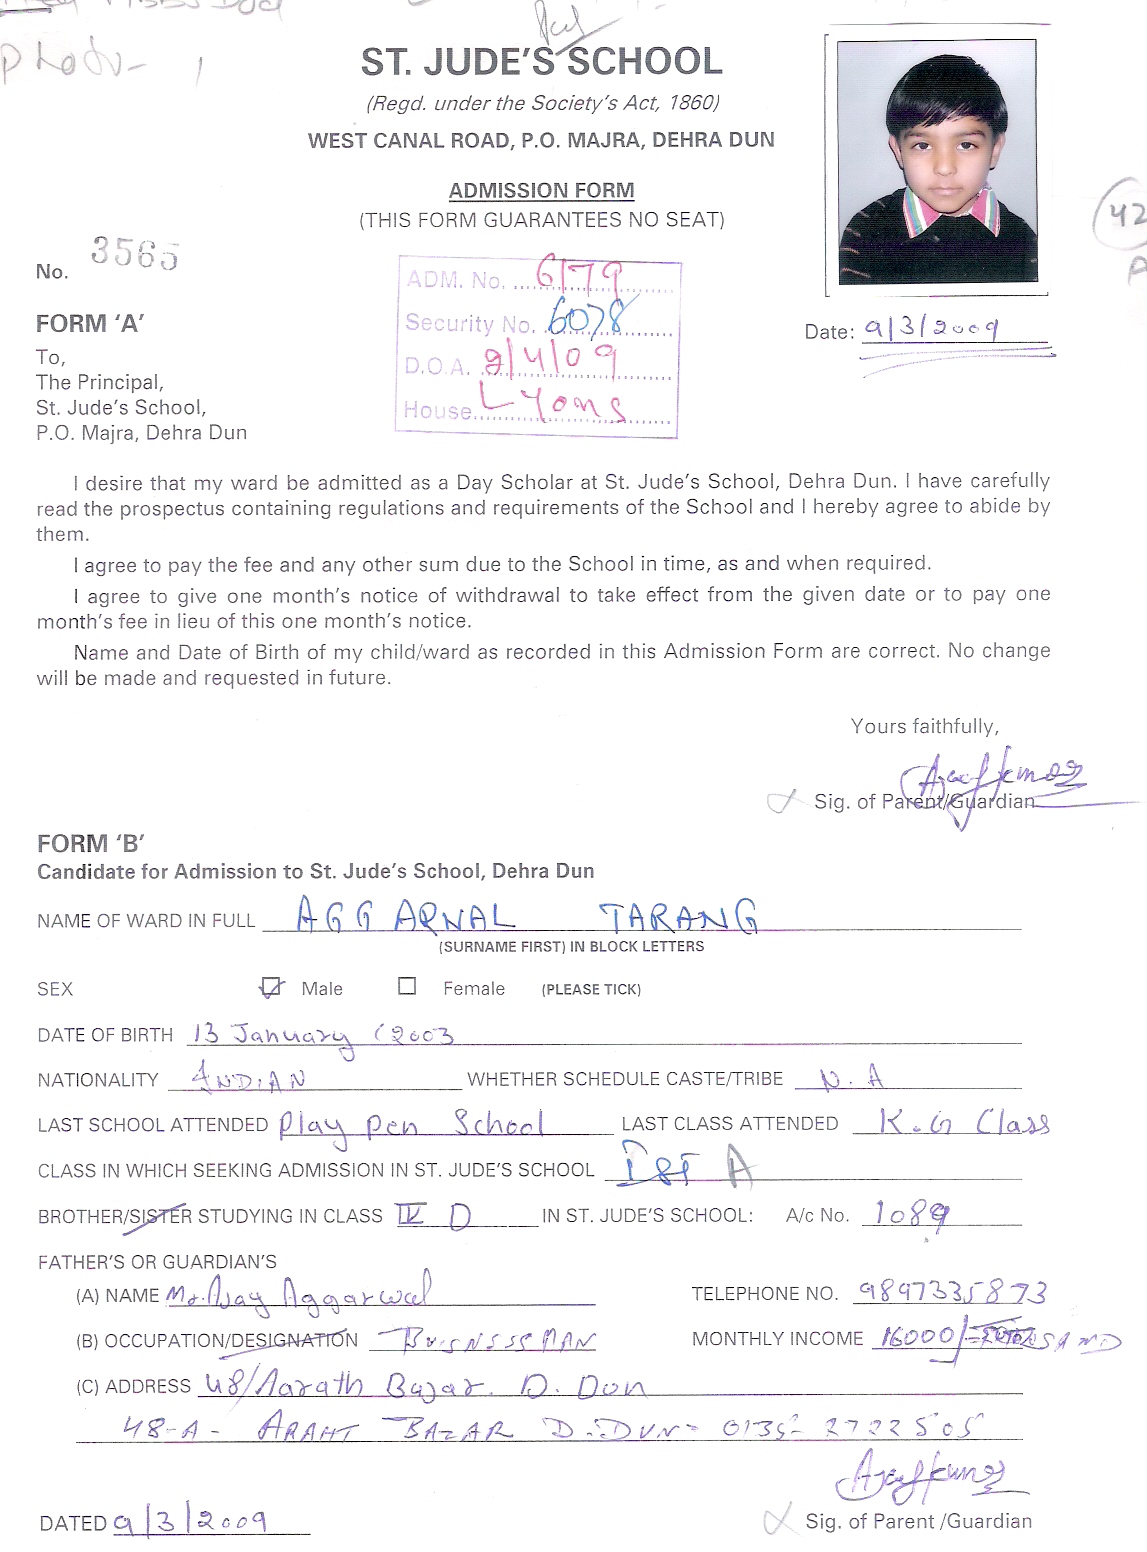 Photo- 1
ST. JUDE'S SCHOOL
(Regd. under the Society's Act, 1860)
WEST CANAL ROAD, P.O. MAJRA, DEHRA DUN
ADMISSION FORM
(THIS FORM GUARANTEES NO SEAT)
42
No. 3565
ADM. No. 6179
Security No. 6078
D.O.A. 2/4/09
House Lyons
FORM 'A'
Date: 9/3/2009
To,
The Principal,
St. Jude's School,
P.O. Majra, Dehra Dun
I desire that my ward be admitted as a Day Scholar at St. Jude's School, Dehra Dun. I have carefully
read the prospectus containing regulations and requirements of the School and I hereby agree to abide by
them.
I agree to pay the fee and any other sum due to the School in time, as and when required.
I agree to give one month's notice of withdrawal to take effect from the given date or to pay one
month's fee in lieu of this one month's notice.
Name and Date of Birth of my child/ward as recorded in this Admission Form are correct. No change
will be made and requested in future.
Yours faithfully,
Sig. of Parent/Guardian
FORM 'B'
Candidate for Admission to St. Jude's School, Dehra Dun
NAME OF WARD IN FULL AGGARWAL TARANG
(SURNAME FIRST) IN BLOCK LETTERS
SEX Male Female (PLEASE TICK)
DATE OF BIRTH 13 January (2003
NATIONALITY INDIAN WHETHER SCHEDULE CASTE/TRIBE N.A
LAST SCHOOL ATTENDED Play Pen School LAST CLASS ATTENDED K.G Class
CLASS IN WHICH SEEKING ADMISSION IN ST. JUDE'S SCHOOL Ist A
BROTHER/SISTER STUDYING IN CLASS IV D IN ST. JUDE'S SCHOOL: A/c No. 1089
FATHER'S OR GUARDIAN'S
(A) NAME Mr. Ajay Aggarwal TELEPHONE NO. 9897335873
(B) OCCUPATION/DESIGNATION BUISNSSSMAN MONTHLY INCOME 16000/=
(C) ADDRESS 48/Aarath Bajar. D. Don
48-A- ARAHT BAZAR D.DUN- 0135-2722505
DATED 9/3/2009 Sig. of Parent /Guardian